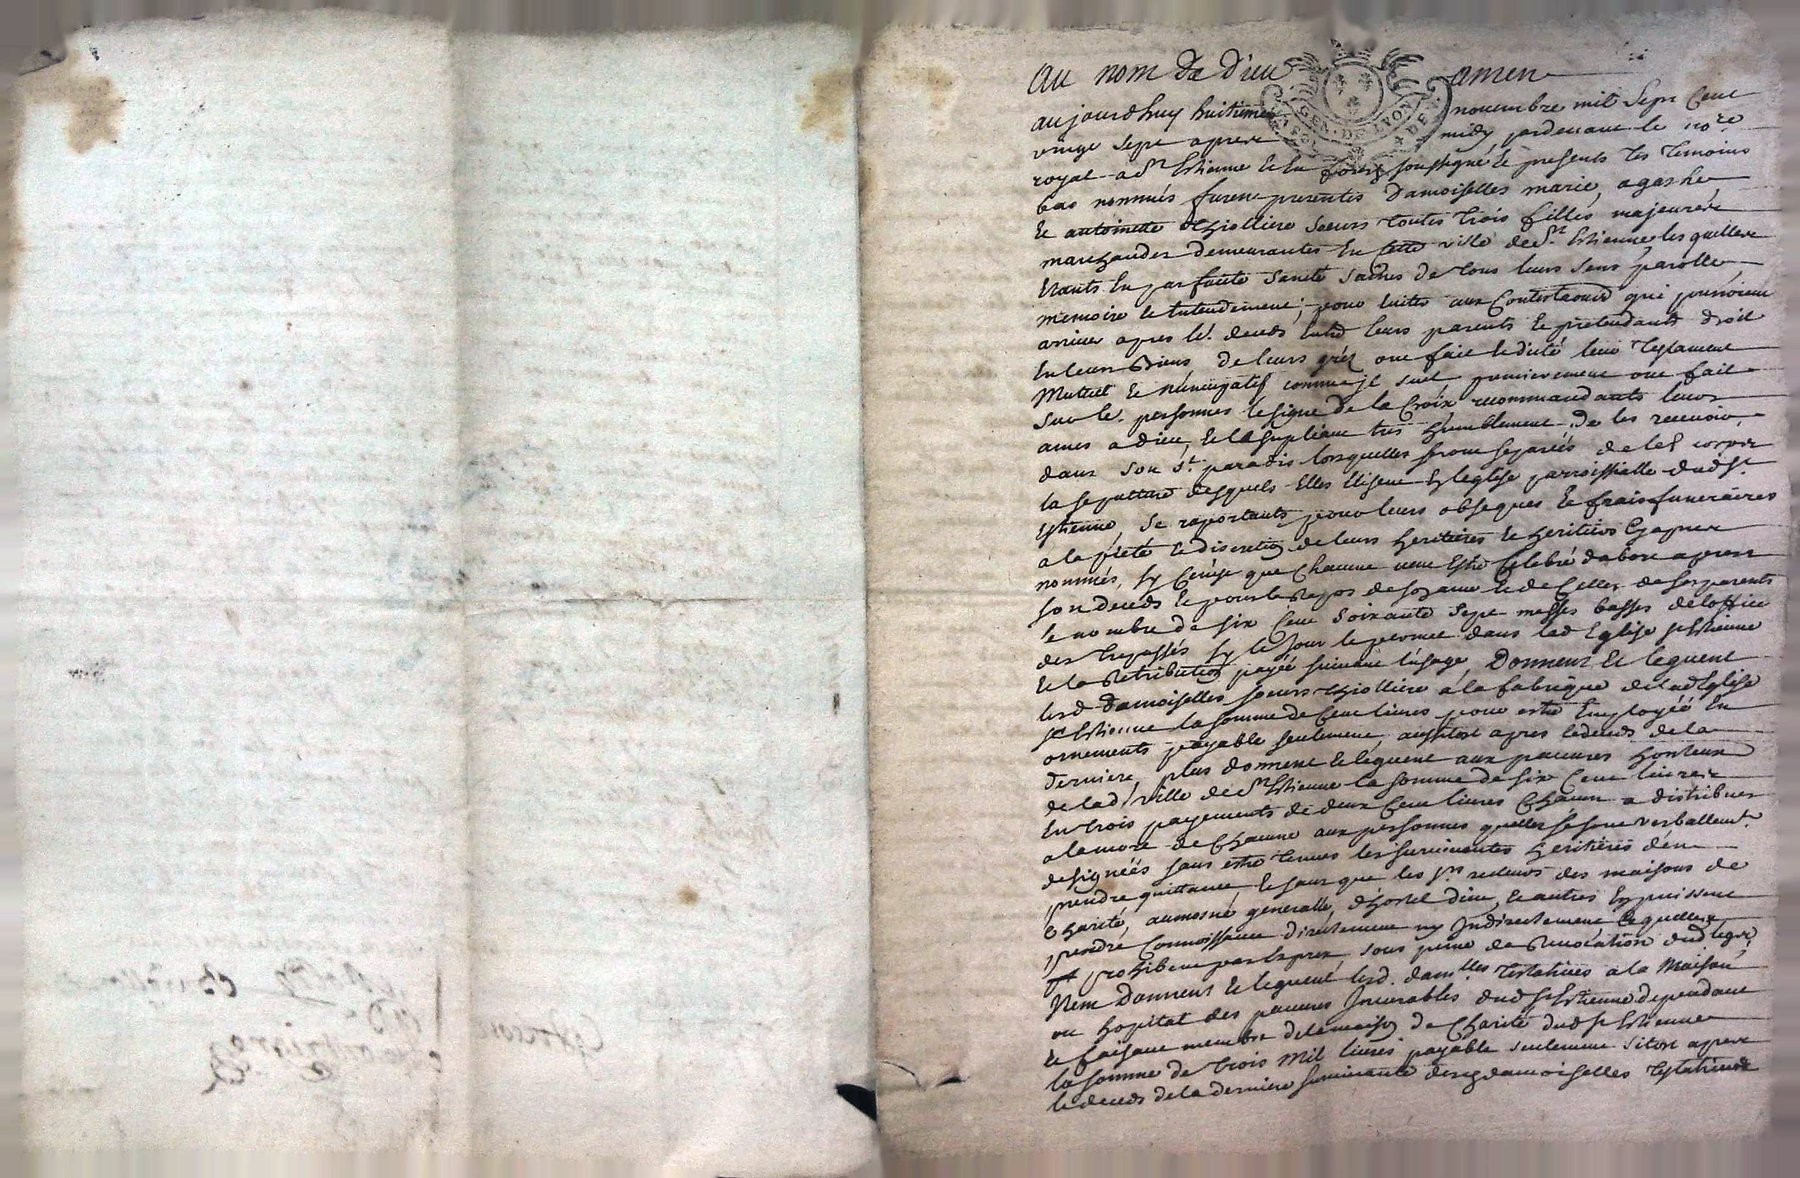 au nom de dieu amen
aujourdhuy huitieme novembre mil sept cent
vingt sept apres midy pardevant le no.re
royal a St Estienne en forez soussigné et presents les temoins
bas nommés furent presentes Damoiselles marie, agathe
et antoinette thiolliere soeurs toutes trois filles majeures
marchandes demeurantes en cette ville de St Estienne lesquelles
Etants en parfaite santé saines de tous leurs sens parolle
memoire et entendement, pour eviter aux contestaons qui pourroient
arriver apres le deceds entre leurs parents et pretendants droit
en leurs Biens de leurs gréz ont fait et dicté leur testament
Mutuel et nuncupatif comme il suit premierement ont fait
sur le personnes le signe de la Croix recommandants leurs
ames a dieu, et le supliant tres humblement de les recevoir
dans son St paradis lorsquelles seront separées de les corps
la sepulture desquels Elles Elisent En leglise parroissialle dud St
Estienne, se raportants pour leurs obseques et frais funeraires
a la pieté et discretion de leurs heritieres et heritiers cy apres
nommés, sy ce nest que chacune veut Estre celebré dabort apres
son deceds et pour le repos de son ame et de celles de ses parents
le nombre de six cent soixante sept messes basses de loffice
des trepassés sy le jour le permet dans lad Eglise St Estienne
et la retribution payée suivant l'usage, Donnent et leguent
lesd Damoiselles soeurs thiolliere a la fabrique de lad Eglise
St Estienne la somme de cent livres pour estre Employée en
ornements payable seulement aussitost apres le deceds de la
derniere, plus donnent et leguent aux pauvres honteux
de lad. ville de St Estienne la somme de six cent livres
En trois payements de deux cent livres chacun a distribuer
a la mort de chacune aux personnes quelles se sont verballemt
designées sans estre tenues les survivantes heritieres den
prendre quittance, et sans que les srs recteurs des maisons de
Charité, aumosne generalle, d'hostel dieu, et autres En puissent
prendre connoissance directement ny Indirectement ce quelles
prohibent par Exprez sous peine de revocation dud legs,
Item donnent et leguent lesd. damlles testatrices a la Maison
ou hopital des pauvres Incurables dud St Estienne dependant
et faisant membre de la maison de Charité dud St Estienne
la somme de trois mil livres payable seulement sitost apres
le deceds de la derniere survivante desd damoiselles testatrices